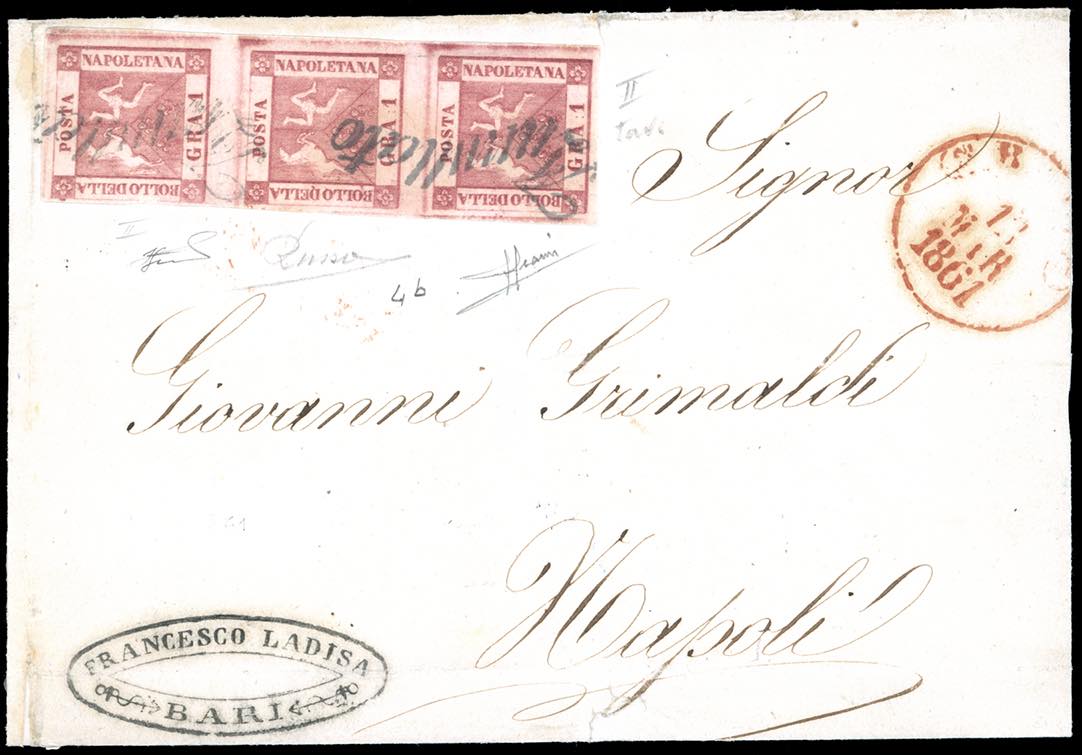 NAPOLETANA NAPOLETANA NAPOLETANA
POSTA GRA 1 POSTA GRA 1 POSTA GRA 1
BOLLO DELLA BOLLO DELLA BOLLO DELLA
Annullato
II
II
Russo
4b
Signor
MAR
1861
Giovanni Grimaldi
Napoli
FRANCESCO LADISA
BARI